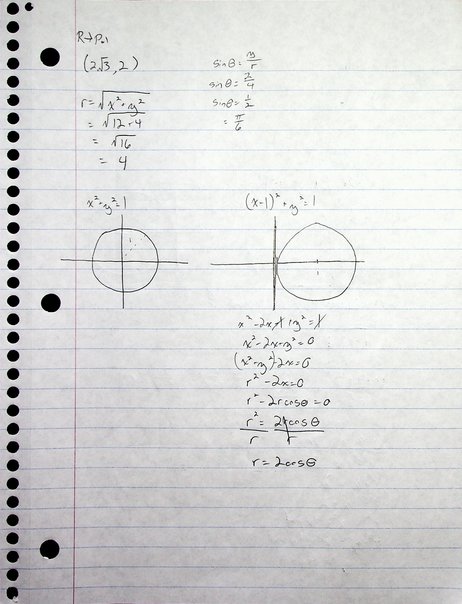 R→Pol
(2√3, 2)
r = √x² + y²
= √12 + 4
= √16
= 4
sinθ = y/r
sinθ = 2/4
sinθ = 1/2
= π/6
x² + y² = 1
(x-1)² + y² = 1
x² - 2x + 1 + y² = 1
x² - 2x + y² = 0
(x² + y²) - 2x = 0
r² - 2x = 0
r² - 2r cosθ = 0
r²/r = 2r cosθ/r
r = 2cosθ